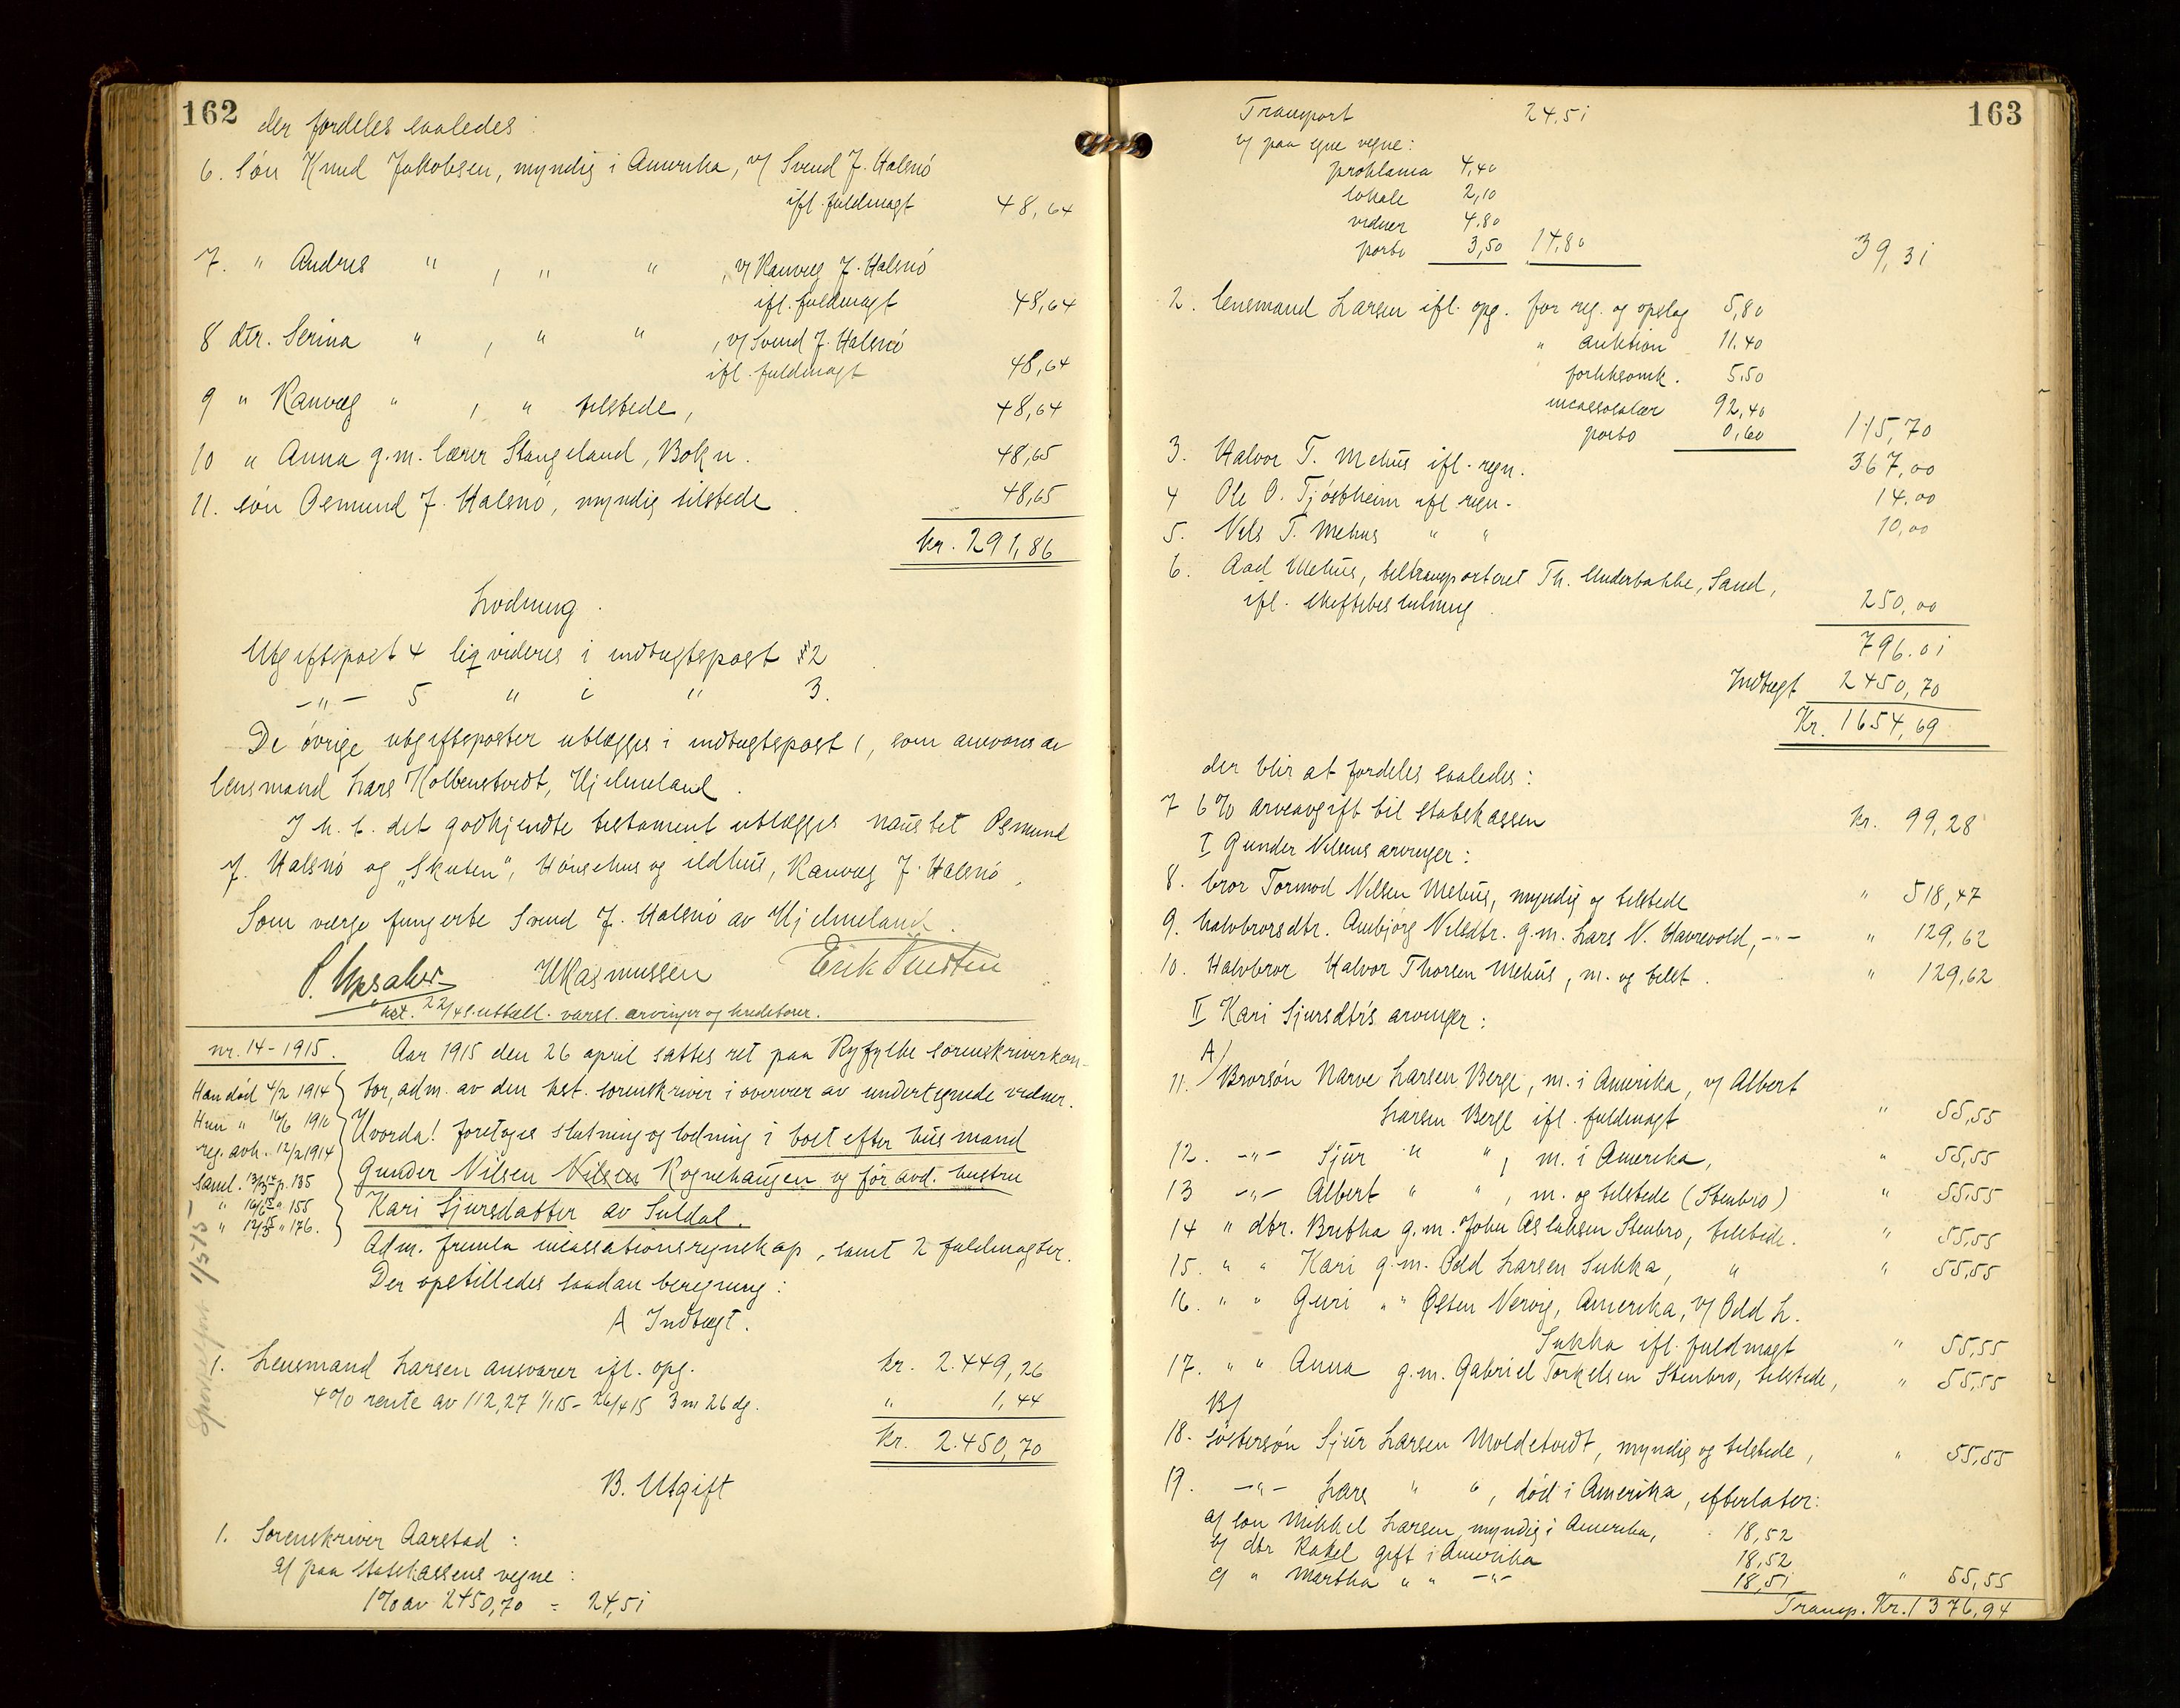 162
der fordeles saaledes:
6. Søn Knud Jakobsen, myndig i Amerika, v/ Svend J. Halsnö
ifl. fuldmagt 48,64
7. " Andres " , " " , v/ Ranveg J. Halsnö
ifl. fuldmagt 48,64
8 dtr. Serina " , " " , v/ Svend J. Halsnö
ifl. fuldmagt 48,64
9 " Ranveg " , " tilstede, 48,64
10 " Anna g.m. lærer Stangeland, Bokn. 48,65
11. søn Osmund J. Halsnö, myndig tilstede. 48,65
kr. 291,86
Lodning.
Utgiftspost 4 liqvideres i indtægtspost 2
-"- 5 " i " 3.
De övrige utgiftsposter utlægges i indtægtspost 1, som ansvares av
lensmand Lars Kolbenstvedt, Hjelmeland.
I h. t. det godkjendte testament utlægges naustet Osmund
J. Halsnö og "Skuten", Hönsehus og ildhus, Ranveg J. Halsnö.
Som værge fungerte Svend J. Halsnö av Hjelmeland.
P. Upsaker H Rasmussen Erik
22/4 s. utstell. varsl. arvinger og kreditorer.
nr. 14-1915. Aar 1915 den 26 april sattes ret paa Ryfylke sorenskriverkon-
Han död 4/2 1914 tor, adm. av den kst. sorenskriver i overvær av undertegnede vidner.
Hun " 16/6 1910 Hvorda! foretoges slutning og lodning i boet efter husmand
reg. avh. 12/2 1914 Gunder Nilsen Nilsen Rognehaugen og før avd. hustru
saml. p. 135 Kari Sjursdatter av Suldal.
" 155
" 176. Adm. fremla incassationsregnskap, samt 2 fuldmagter.
Der opstilledes saadan beregning:
A Indtægt.
1. Lensmand Larsen ansvarer ifl. opg. kr. 2.449,26
4% rente av 112,27 1/1 15 - 26/4 15 3 m 26 dg. " 1,44
kr. 2.450,70
B. Utgift
1. Sorenskriver Aarstad:
a/ paa statskassens vegne:
1% av 2450,70 = 24,51
163
Transport 24,51
b/ paa egne vegne:
proklama 4,40
lokale 2,10
vidner 4,80
porto 3,50 14,80 39,31
2. lensmand Larsen ifl. opg. for reg. og opslag 5,80
" auktion 11.40
" forkksomk. 5.50
incassosalær 92,40
porto 0,60 115,70
3. Halvor T. Mehus ifl. regn. 367,00
4 Ole O. Tjöstheim ifl regn. 14.00
5. Nils T. Mehus " " 10,00
6. Aad Mehus, tiltransporteret Th. Underbakke, Sand,
ifl. skiftebeslutning. 250,00
796.01
Indtægt 2450,70
Kr. 1654,69
der blir at fordeles saaledes:
7 6% arveavgift til statskassen kr. 99,28
I Gunder Nilsens arvinger:
8. bror Tormod Nilsen Mehus, myndig og tilstede " 518,47
9. halvbrorsdtr. Anbjørg Nilsdtr. g.m. Lars N. Havrevold, -"- " 129,62
10. Halvbror Halvor Thorsen Mehus, m. og tilst. " 129,62
II Kari Sjursdtr's arvinger:
A/
11. Brorsön Narve Larsen Berge, m. i Amerika, v/ Albert
Larsen Berge ifl. fuldmagt " 55,55
12. -"- Sjur " " , m. i Amerika, " 55,55
13 -"- Albert " " , m. og tilstede (Stenbro) " 55,55
14 " dtr. Britha g.m. John Aslaksen Stenbro, tilstede. " 55,55
15. " " Kari g.m. Odd Larsen Sukka, " " 55,55
16. " " Guri " " Østen Nervig, Amerika, v/ Odd L.
Sukka ifl. fuldmagt " 55,55
17. " " Anna g.m. Gabriel Torkelsen Stenbro, tilstede, " 55,55
B/
18. Söstersön Sjur Larsen Moldetvedt, myndig og tilstede, " 55,55
19. -"- Lars " " , död i Amerika, efterlater:
a/ sön Mikkel Larsen, myndig i Amerika, 18,52
b/ dtr Rakel gift i Amerika 18,52
c/ " Martha " " -"- 18,51 " 55,55
Transp. Kr. 1376,94